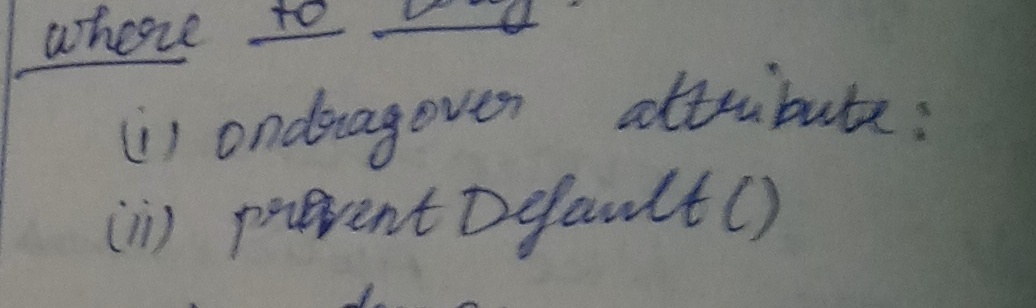 where to
(i) ondragover attribute:
(ii) preventDefault()